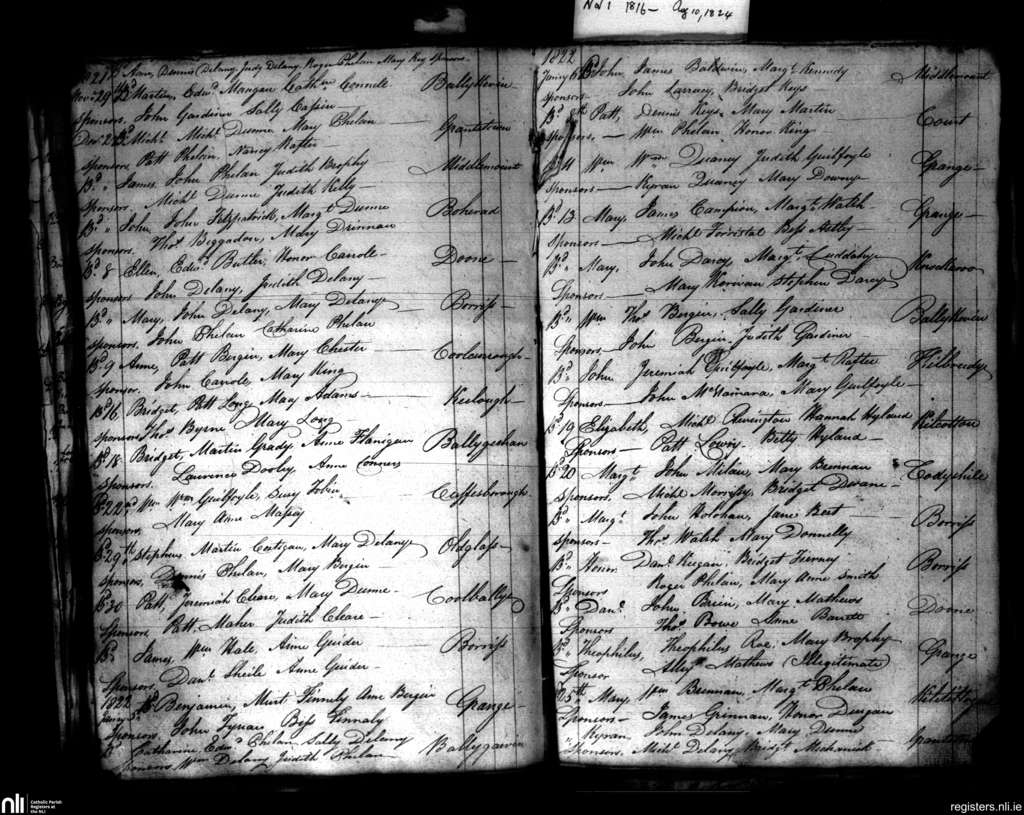 No 1 1816 - Aug 10, 1824
1821 Bd Anne, Dennis Delany, Judy Delany, Roger Phelan Mary Key Sponsors
Novr 29th Bd Martin, Edwd Mangan Cathn Connile Ballykevin
Sponsors, John Gardiner Sally Capin
Decr 2 Bd Michl Michl Dunne Mary Phelan Grantstown
Sponsors Patt Phelan, Nancy Rafter
Bd " James John Phelan Judith Brophy Middlemount
Sponsors, Michl Dunne Judith Kelly
Bd " John, John Fitzpatrick, Margt Dunne Boherad
Sponsors, Thos Beggadon, Mary Drennan
Bd 8 Ellen, Edwd Butler, Honor Carrole Doone
Sponsors John Delany, Judith Delany
Bd " Mary, John Delany, Mary Delany Borriss
Sponsors, John Phelan Catharine Phelan
Bd 9 Anne, Patt Bergin, Mary Chester Coolowrough
Sponsor, John Carrole, Mary King
Bd 16 Bridget, Patt Long Mary Adams Keelough
Sponsors Thos Byrne Mary Long
Bd 18 Bridget, Martin Grady, Anne Flanigan Ballygeehan
Sponsors, Laurence Dooly, Anne Conners
Bd 22nd Wm Wm Guilfoyle, Susy Tobin Caffesborough
Sponsors, Mary Anne Massy
Bd 29th Stephen, Martin Costigan, Mary Delany Oldglass
Sponsors, Dennis Phelan, Mary Bergin
Bd 30 Patt, Jeremiah Cleare, Mary Dunne Coolbally
Sponsors, Patt Maher Judith Cleare
Bd James, Wm Hale, Anne Guider Borriss
Sponsors, Danl Sheile Anne Guider
1822
Janry 3d Bd Benjamin, Murt Finnely Anne Bergin Grange
Sponsors, John Tynan Bess Fennaly
Bd Catharine Edwd Phelan Sally Delany Ballygauvin
Sponsors Wm Delany Judith Phelan
1822
Janry 6 Bd John, James Baldwin, Margt Kennedy Middlemount
Sponsors John Larracy, Bridget Keys
Bd " Patt, Dennis Keys Mary Martin Court
Sponsors, Wm Phelan Honor King
Bd 11 Wm Wm Quaney Judith Guilfoyle Grange
Sponsors Kyran Quaney Mary Downy
Bd 13 Mary, James Campion, Margt Walsh Grange
Sponsors Michl Forristal Bess Hetly
Bd " Mary, John Darcy, Margt Cuddahy
Sponsors Mary Korivan Stephen Darcy
Bd " Wm Thos Bergin, Sally Gardiner Ballykevin
Sponsors John Bergin Judith Gardiner
Bd " John Jeremiah Guilfoyle, Margt Rafter Kilbreedy
Sponsors John McNamara Mary Guilfoyle
Bd 19 Elizabeth, Michl Hannah Hyland Kilcotton
Sponsors Patt Lowry Betty Hyland
Bd 20 Margt John Milan, Mary Brennan
Sponsors, Michl Morrissy, Bridget Dwane
Bd " Margt John Holohan, Jane Best Borriss
Sponsors Thos Walsh Mary Donnelly
Bd " Honor Danl Keegan, Bridget Tierney Borriss
Sponsors Roger Phelan, Mary Anne Smith
Bd " Danl John Brien, Mary Mathews Doone
Sponsors Thos Bowe Anne
Bd " Theophilus, Theophilus Roe, Mary Brophy Grange
Sponsor Mathews (Illegitimate)
Bd 25th Mary, Wm Brennan, Margt Phelan
Sponsors James Grennan, Honor Duigan
" Kyran John Delany, Mary Dunne
Sponsors, Michl Delany Bridgt
nli
Catholic Parish
Registers at
the NLI
registers.nli.ie